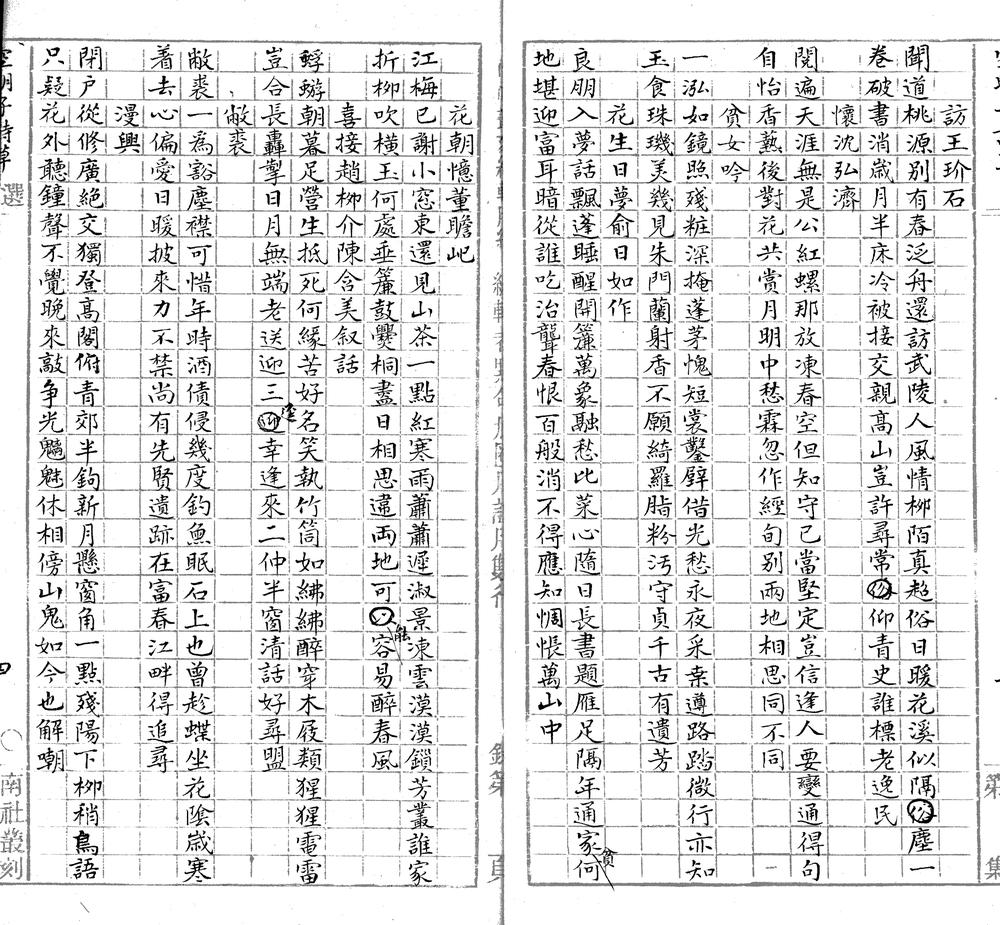 訪王玠石
聞道桃源别有春泛舟還訪武陵人風情柳陌真超俗日暖花溪似隔俗塵一
卷破書消歲月半床冷被接交親髙山豈許尋常俗仰青史誰標老逸民
懷沈弘濟
閱遍天涯無是公紅螺那放凍春空但知守已當堅定豈信逢人要變通得句
自怡香爇後對花共賞月明中愁霖忽作經旬别兩地相思同不同
貧女吟
一泓如鏡照殘粧深掩蓬茅愧短裳鑿壁借光愁永夜采桑遵路踏微行亦知
玉食珠璣美幾見朱門蘭射香不願綺羅脂粉汚守貞千古有遺芳
花生日夢俞日如作
良朋入夢話飄蓬睡醒開簾萬象融愁比菜心隨日長書題雁足隔年通家何貧
地堪迎富耳暗從誰吃治聾春恨百般消不得應知惆悵萬山中
花朝憶董瞻屺
江梅已謝小窓東還見山茶一點紅寒雨蕭蕭遲淑景凍雲漠漠鎖芳叢誰家
折柳吹橫玉何處垂簾鼓爨桐盡日相思違両地可能容易醉春風
喜接趙柳介陳含美叙話
蜉蝣朝暮足營生抵死何緣苦好名笑執竹筒如紼紼醉穿木屐類猩猩雷雷
豈合長轟掣日月無端老送迎三迎幸逢來二仲半窗清話好尋盟
敝裘
敝裘一為豁塵襟可惜年時酒債侵幾度釣魚眠石上也曾趁蝶坐花陰歲寒
着去心偏愛日暖披來力不禁尚有先賢遺跡在富春江畔得追尋
漫興
閉戶從修廣絕交獨登髙閣俯青郊半鉤新月懸窗角一點殘陽下柳稍鳥語
只疑花外聽鐘聲不覺晚來敲争光魑魅休相傍山鬼如今也解嘲
選
四
南社叢刻
第
頁
第
集